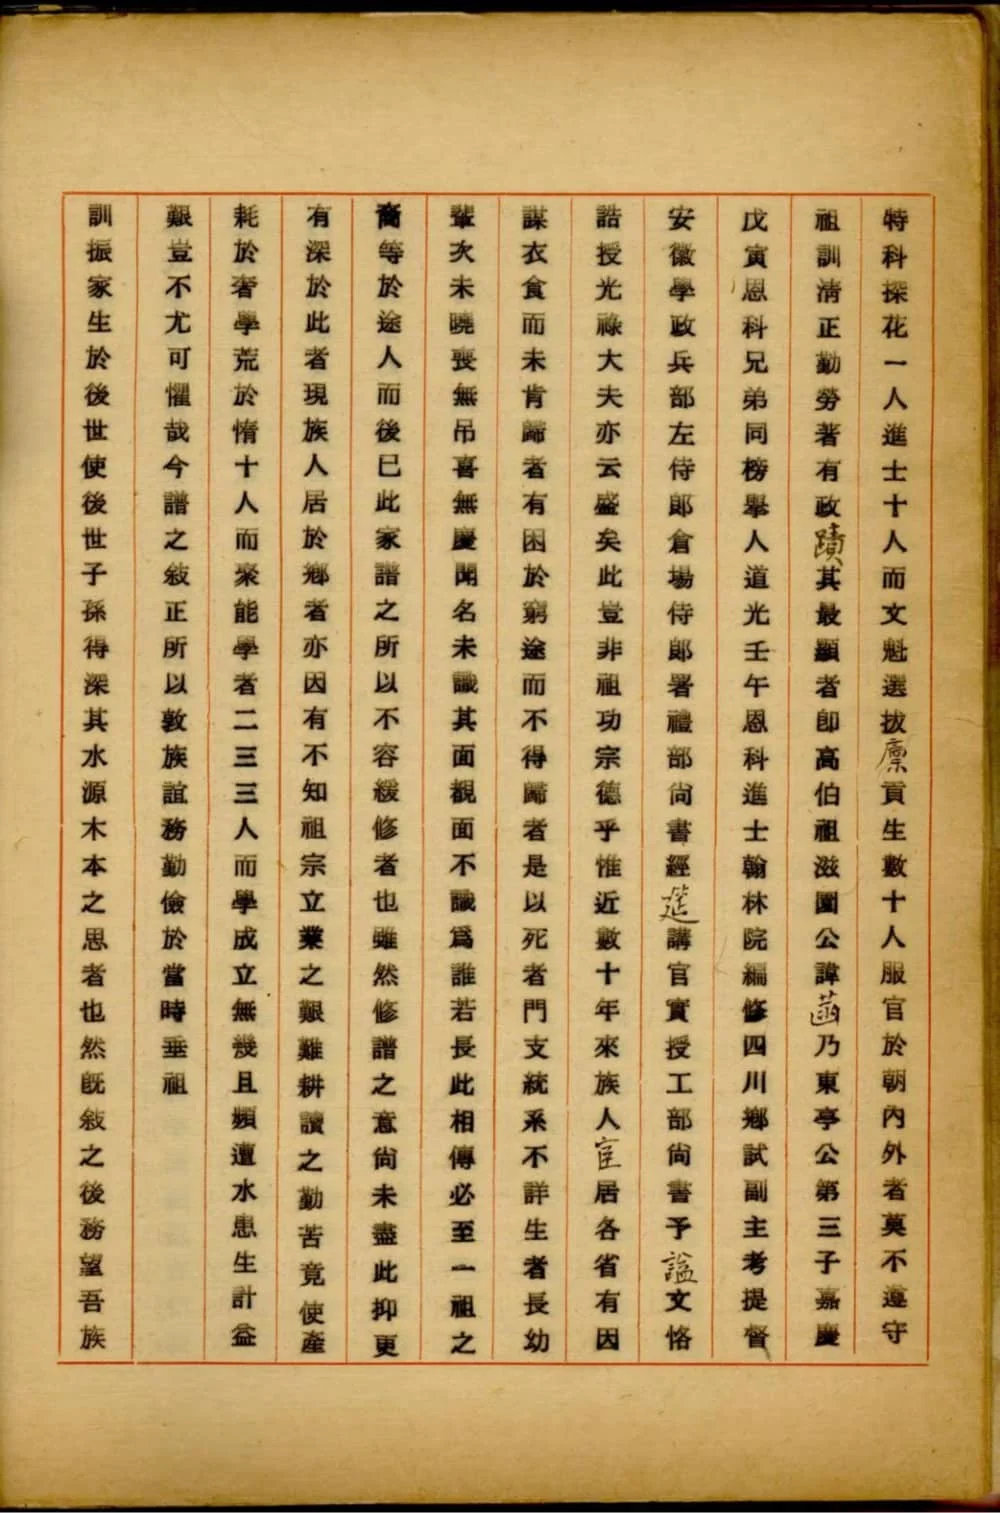 特科探花一人進士十人而文魁選拔廩貢生數十人服官於朝內外者莫不遵守
祖訓清正勤勞著有政蹟其最顯者卽高伯祖滋圃公諱菡乃東亭公第三子嘉慶
戊寅恩科兄弟同榜舉人道光壬午恩科進士翰林院編修四川鄉試副主考提督
安徽學政兵部左侍郎倉場侍郎署禮部尙書經筵講官實授工部尙書予謚文恪
誥授光祿大夫亦云盛矣此豈非祖功宗德乎惟近數十年來族人宦居各省有因
謀衣食而未肯歸者有困於窮途而不得歸者是以死者門支統系不詳生者長幼
輩次未曉喪無吊喜無慶聞名未識其面覩面不識爲誰若長此相傳必至一祖之
裔等於途人而後已此家譜之所以不容緩修者也雖然修譜之意尙未盡此抑更
有深於此者現族人居於鄉者亦因有不知祖宗立業之艱難耕讀之勤苦竟使產
耗於奢學荒於惰十人而聚能學者二三三人而學成立無幾且頻遭水患生計益
艱豈不尤可懼哉今譜之敍正所以敦族誼務勤儉於當時垂祖
訓振家生於後世使後世子孫得深其水源木本之思者也然旣敍之後務望吾族